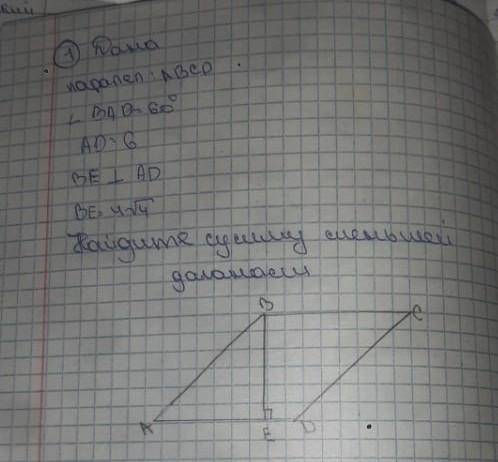 1 Дано
парапел: ABCD
∟ BAD=60°
AD=6
BE ⊥ AD
BE=4√4
Найдите сумму меньшей
B
C
A
E
D